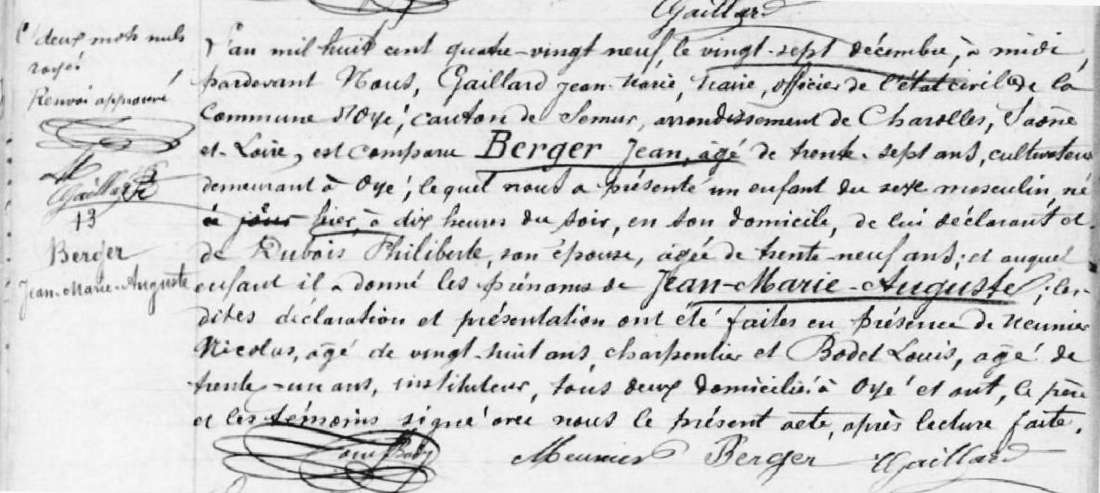 Gaillard
C/ deux mots nuls
rayés
Renvoi approuvé
Gaillard
13
Berger
Jean-Marie-Auguste
L'an mil huit cent quatre-vingt neuf, le vingt-sept décembre, à midi,
pardevant Nous, Gaillard Jean-Marie, Maire, officier de l'état civil de la
Commune d'Oyé, canton de Semur, arrondissement de Charolles, Saône
et-Loire, est comparu Berger Jean, âgé de trente-sept ans, cultivateur
demeurant à Oyé, lequel nous a présenté un enfant du sexe masculin, né
à jour hier, à dix heures du soir, en son domicile, de lui déclarant et
de Dubois Philiberte, son épouse, âgée de trente-neuf ans; et auquel
enfant il a donné les prénoms de Jean-Marie-Auguste; les
dites déclaration et présentation ont été faites en présence de Meunier
Nicolas, âgé de vingt-huit ans, charpentier et Bodet Louis, âgé de
trente-un ans, instituteur, tous deux domiciliés à Oyé et ont, le père
et les témoins signé avec nous le présent acte, après lecture faite.
Meunier Berger Gaillard